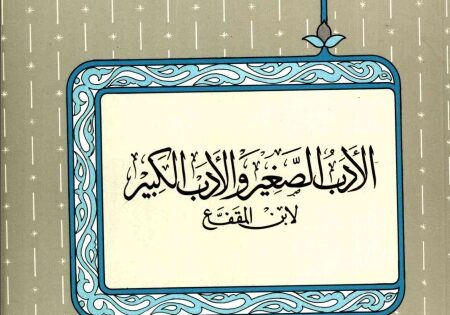 الأدَبُ الصَّغيرُ وَالأدَبُ الكَبير
لابن المقفَّع